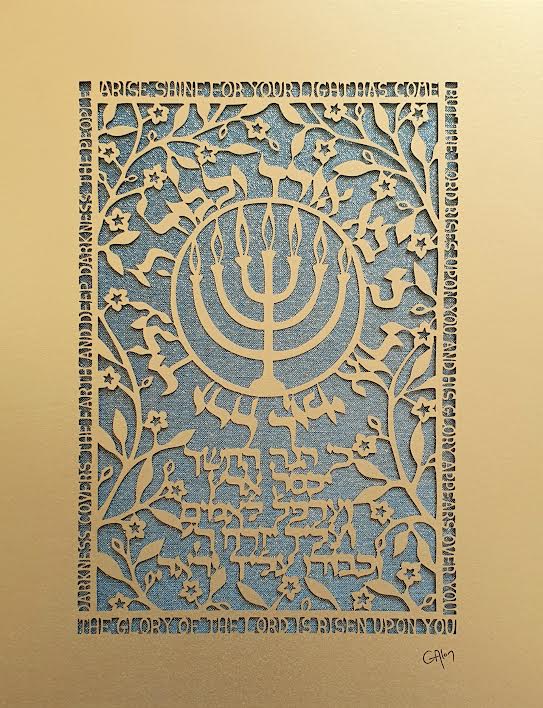 ARISE SHINE FOR YOUR LIGHT HAS COME
THE GLORY OF THE LORD IS RISEN UPON YOU
DARKNESS COVERS THE EARTH AND DEEP DARKNESS THE PEOPLE
BUT THE LORD RISES UPON YOU AND HIS GLORY APPEARS OVER YOU
כי הנה החשך
יכסה ארץ
וערפל לאמים
ועליך יזרח
וכבודו עליך יראה
GAlon